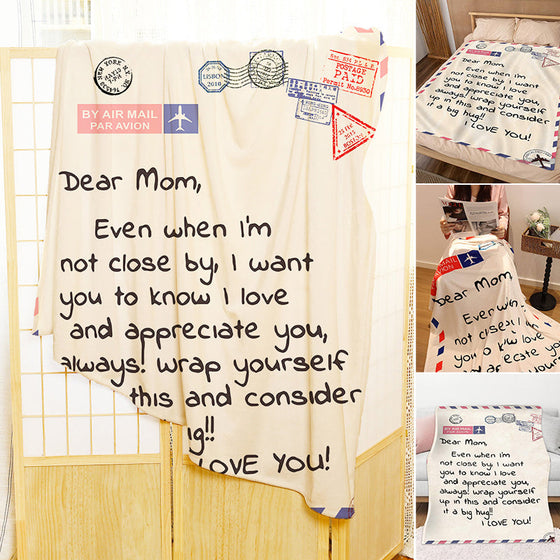 NEW YORK N.Y.
LISBON
2010
POSTAGE
PAID
Permit No.8930
BY AIR MAIL
PAR AVION
Dear Mom,
Even when i'm
not close by, I want
you to know I love
and appreciate you,
always! wrap yourself
this and consider
ig!!
I LOVE YOU!
Dear Mom,
Even when i'm
not close by, I want
you to know I love
and appreciate you,
always! wrap yourself
up in this and consider
it a big hug!!
I LOVE YOU!
AIR MAIL
AVION
Dear Mom,
Even when
not close
you to know I love
appreciate you
wrap yourself
and consider
BY AIR MAIL
PAR AVION
Dear Mom,
Even when i'm
not close by, I want
you to know I love
and appreciate you,
always! wrap yourself
up in this and consider
it a big hug!!
I LOVE YOU!